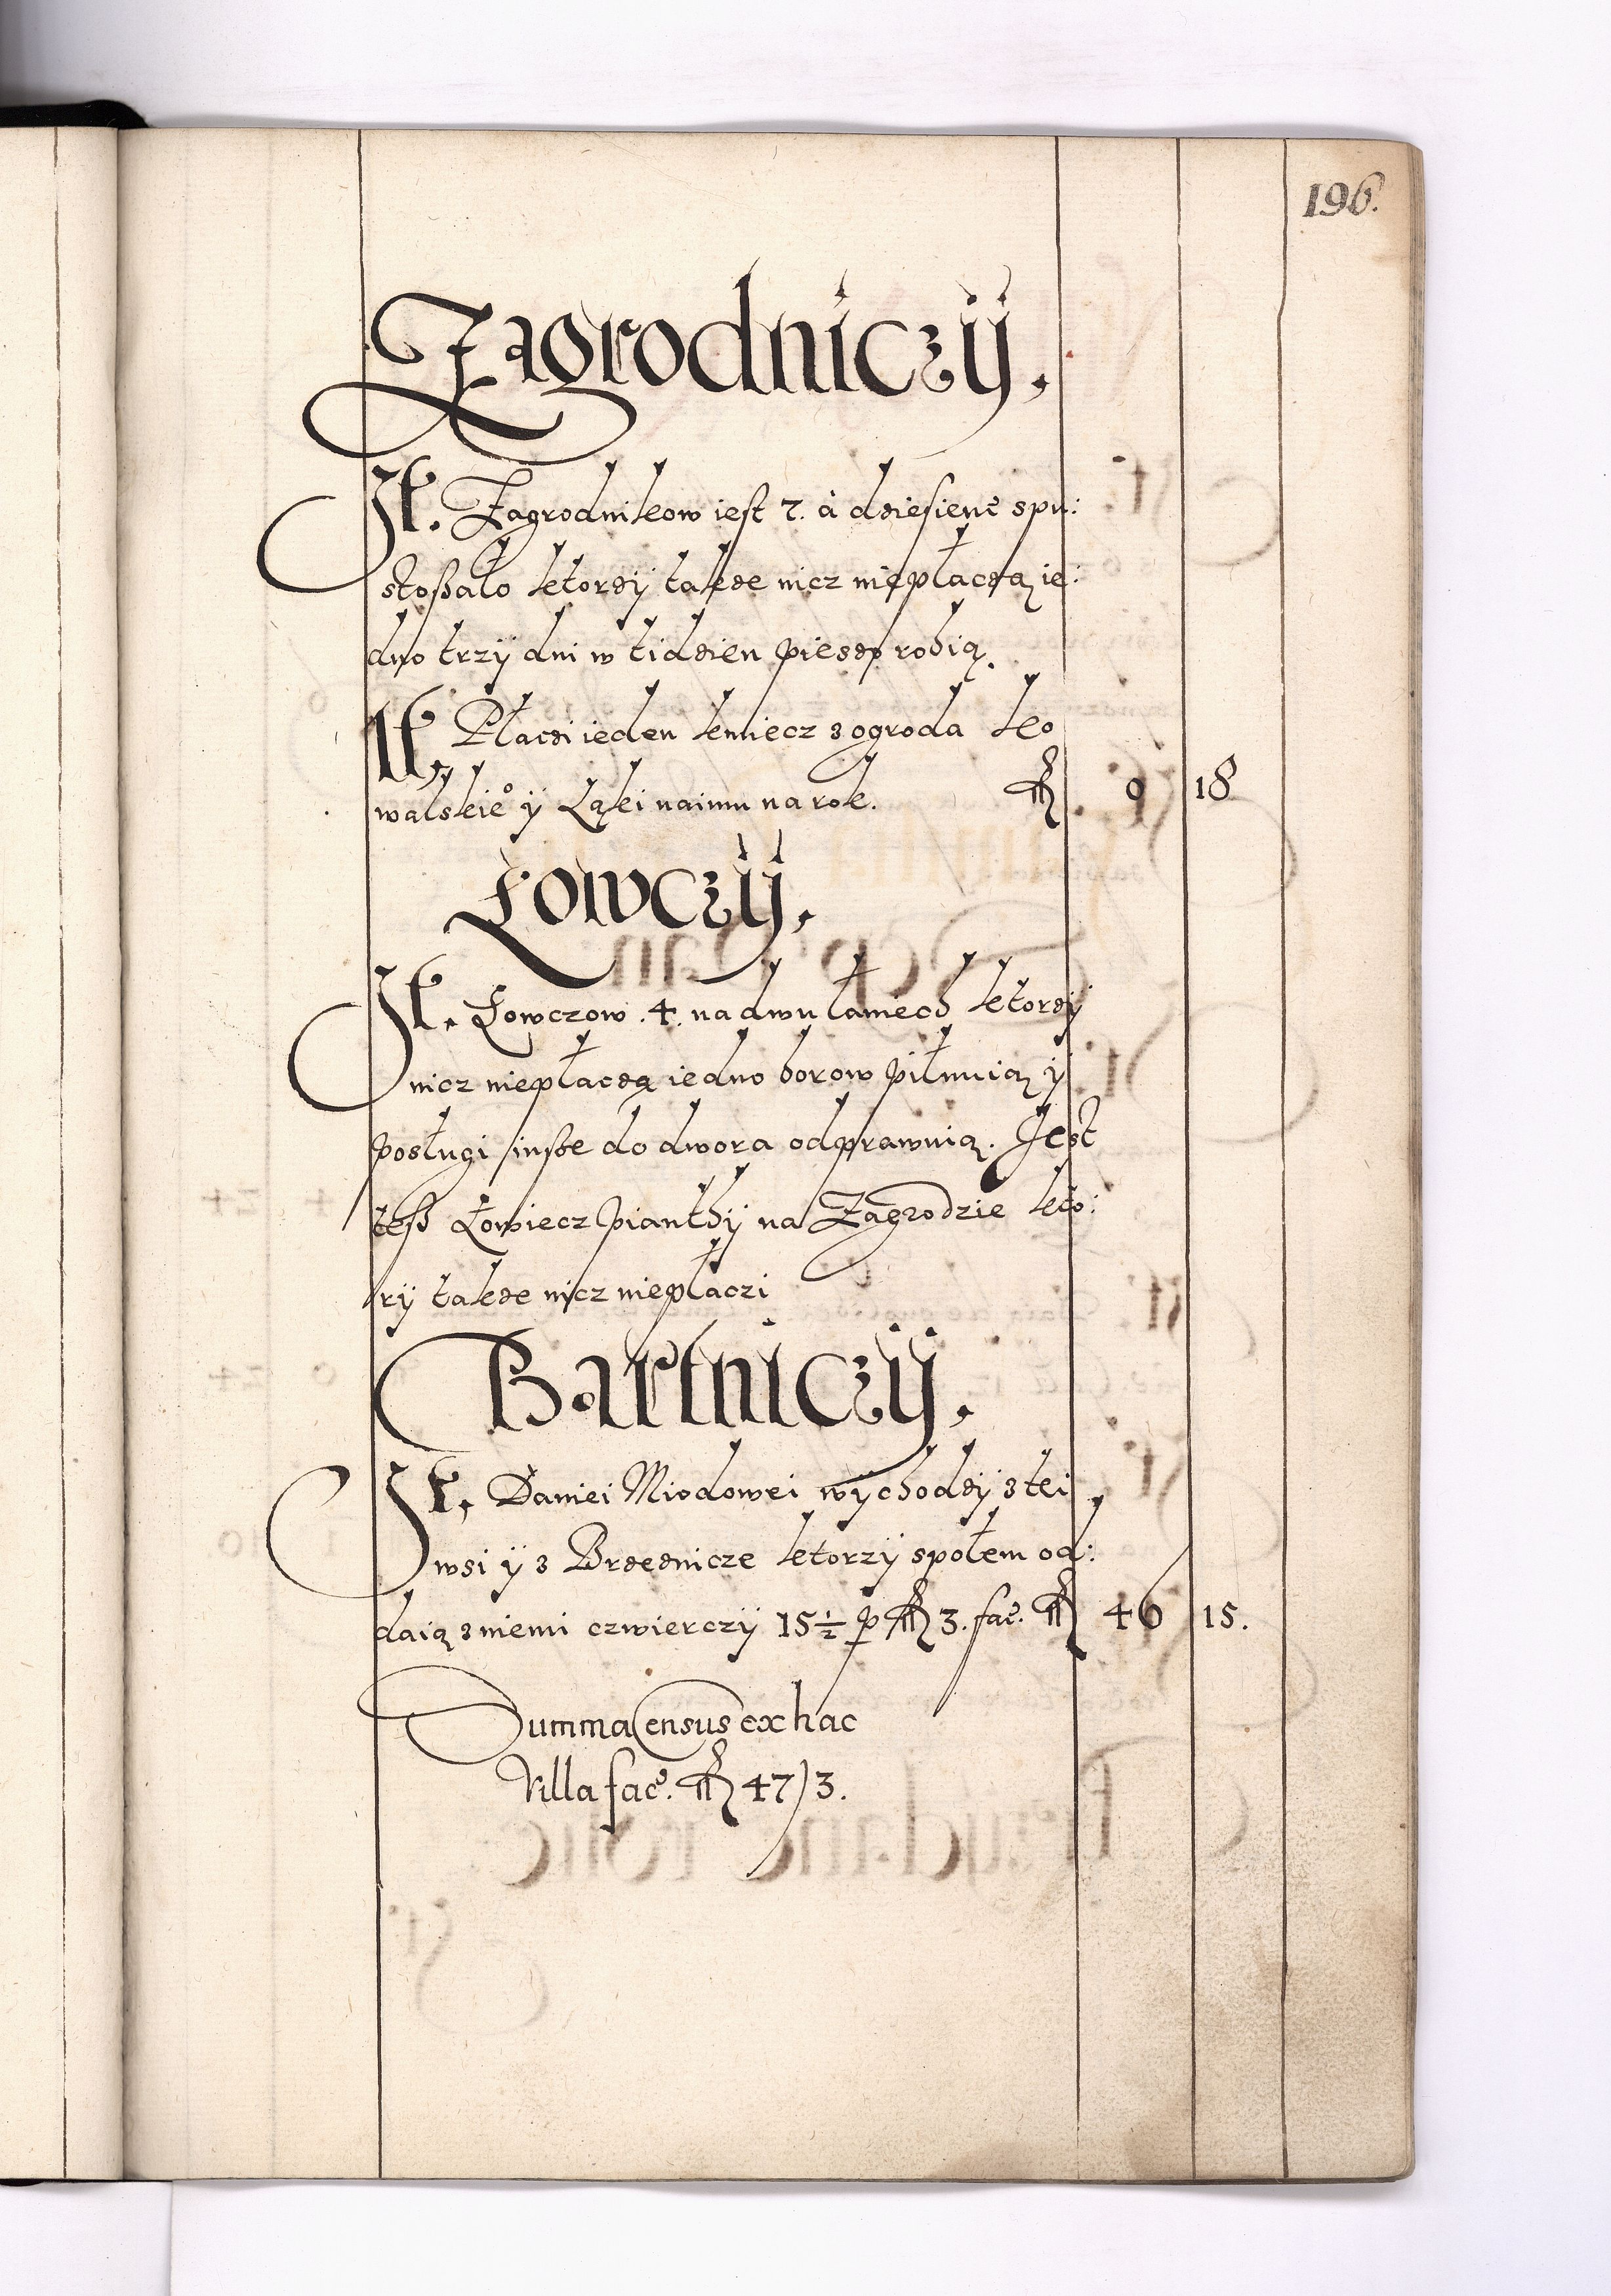 196.
Zagrodniczÿ.
It. Zagrodnikow iest 7. à dziesienc̃ spu:
stoßało ktorzÿ takze nicz niepłaczą ie:
dno trzÿ dni w tidzien pieszo robią.
It. Płaczi ieden kmiecz z ogroda ko
walskieº ÿ Łąki naimu na rok. fl 0 18
Łowczÿ.
It. Łowczow .4. na dwu łaniech ktorzÿ
nicz niepłaczą iedno borow pilnuią ÿ
posługi insze do dwora odprawuią. Jest
teß Łowiecz pianthÿ na Zagrodzie kto:
rÿ takze nicz niepłaczi
Bartniczÿ.
It. Daniei Miodowei wÿchodzÿ z tei
wsi ÿ z Brzeznicze ktorzÿ społem od:
daią z niemi czwierczÿ 15½ p fl 3. fac̃. fl 46 15.
Summa Census ex hac
Villa fac̃. fl 47/3.